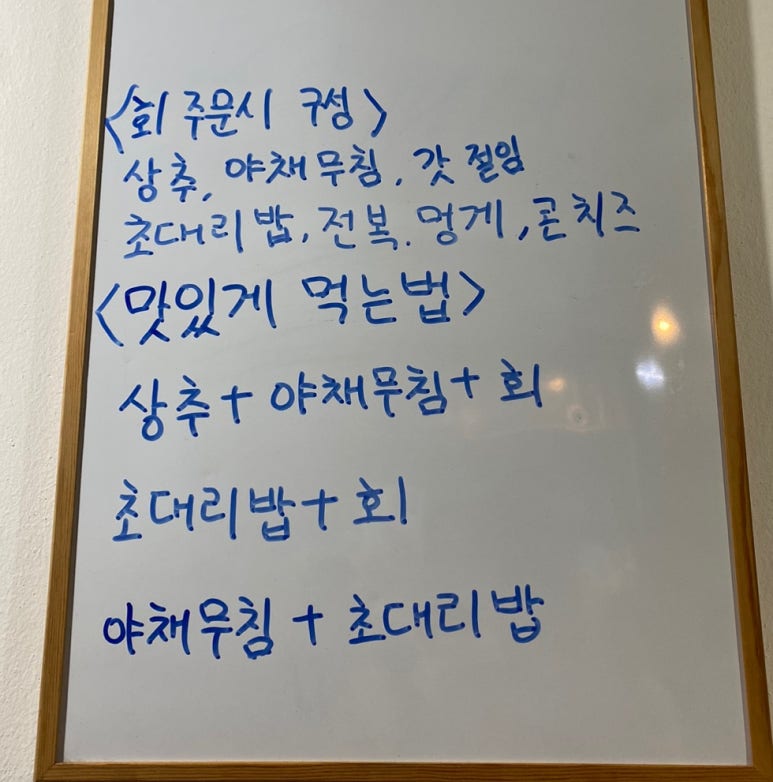 <회 주문시 구성>
상추, 야채무침, 갓절임
초대리밥, 전복, 멍게, 콘치즈
<맛있게 먹는법>
상추+야채무침+회
초대리밥+회
야채무침+초대리밥